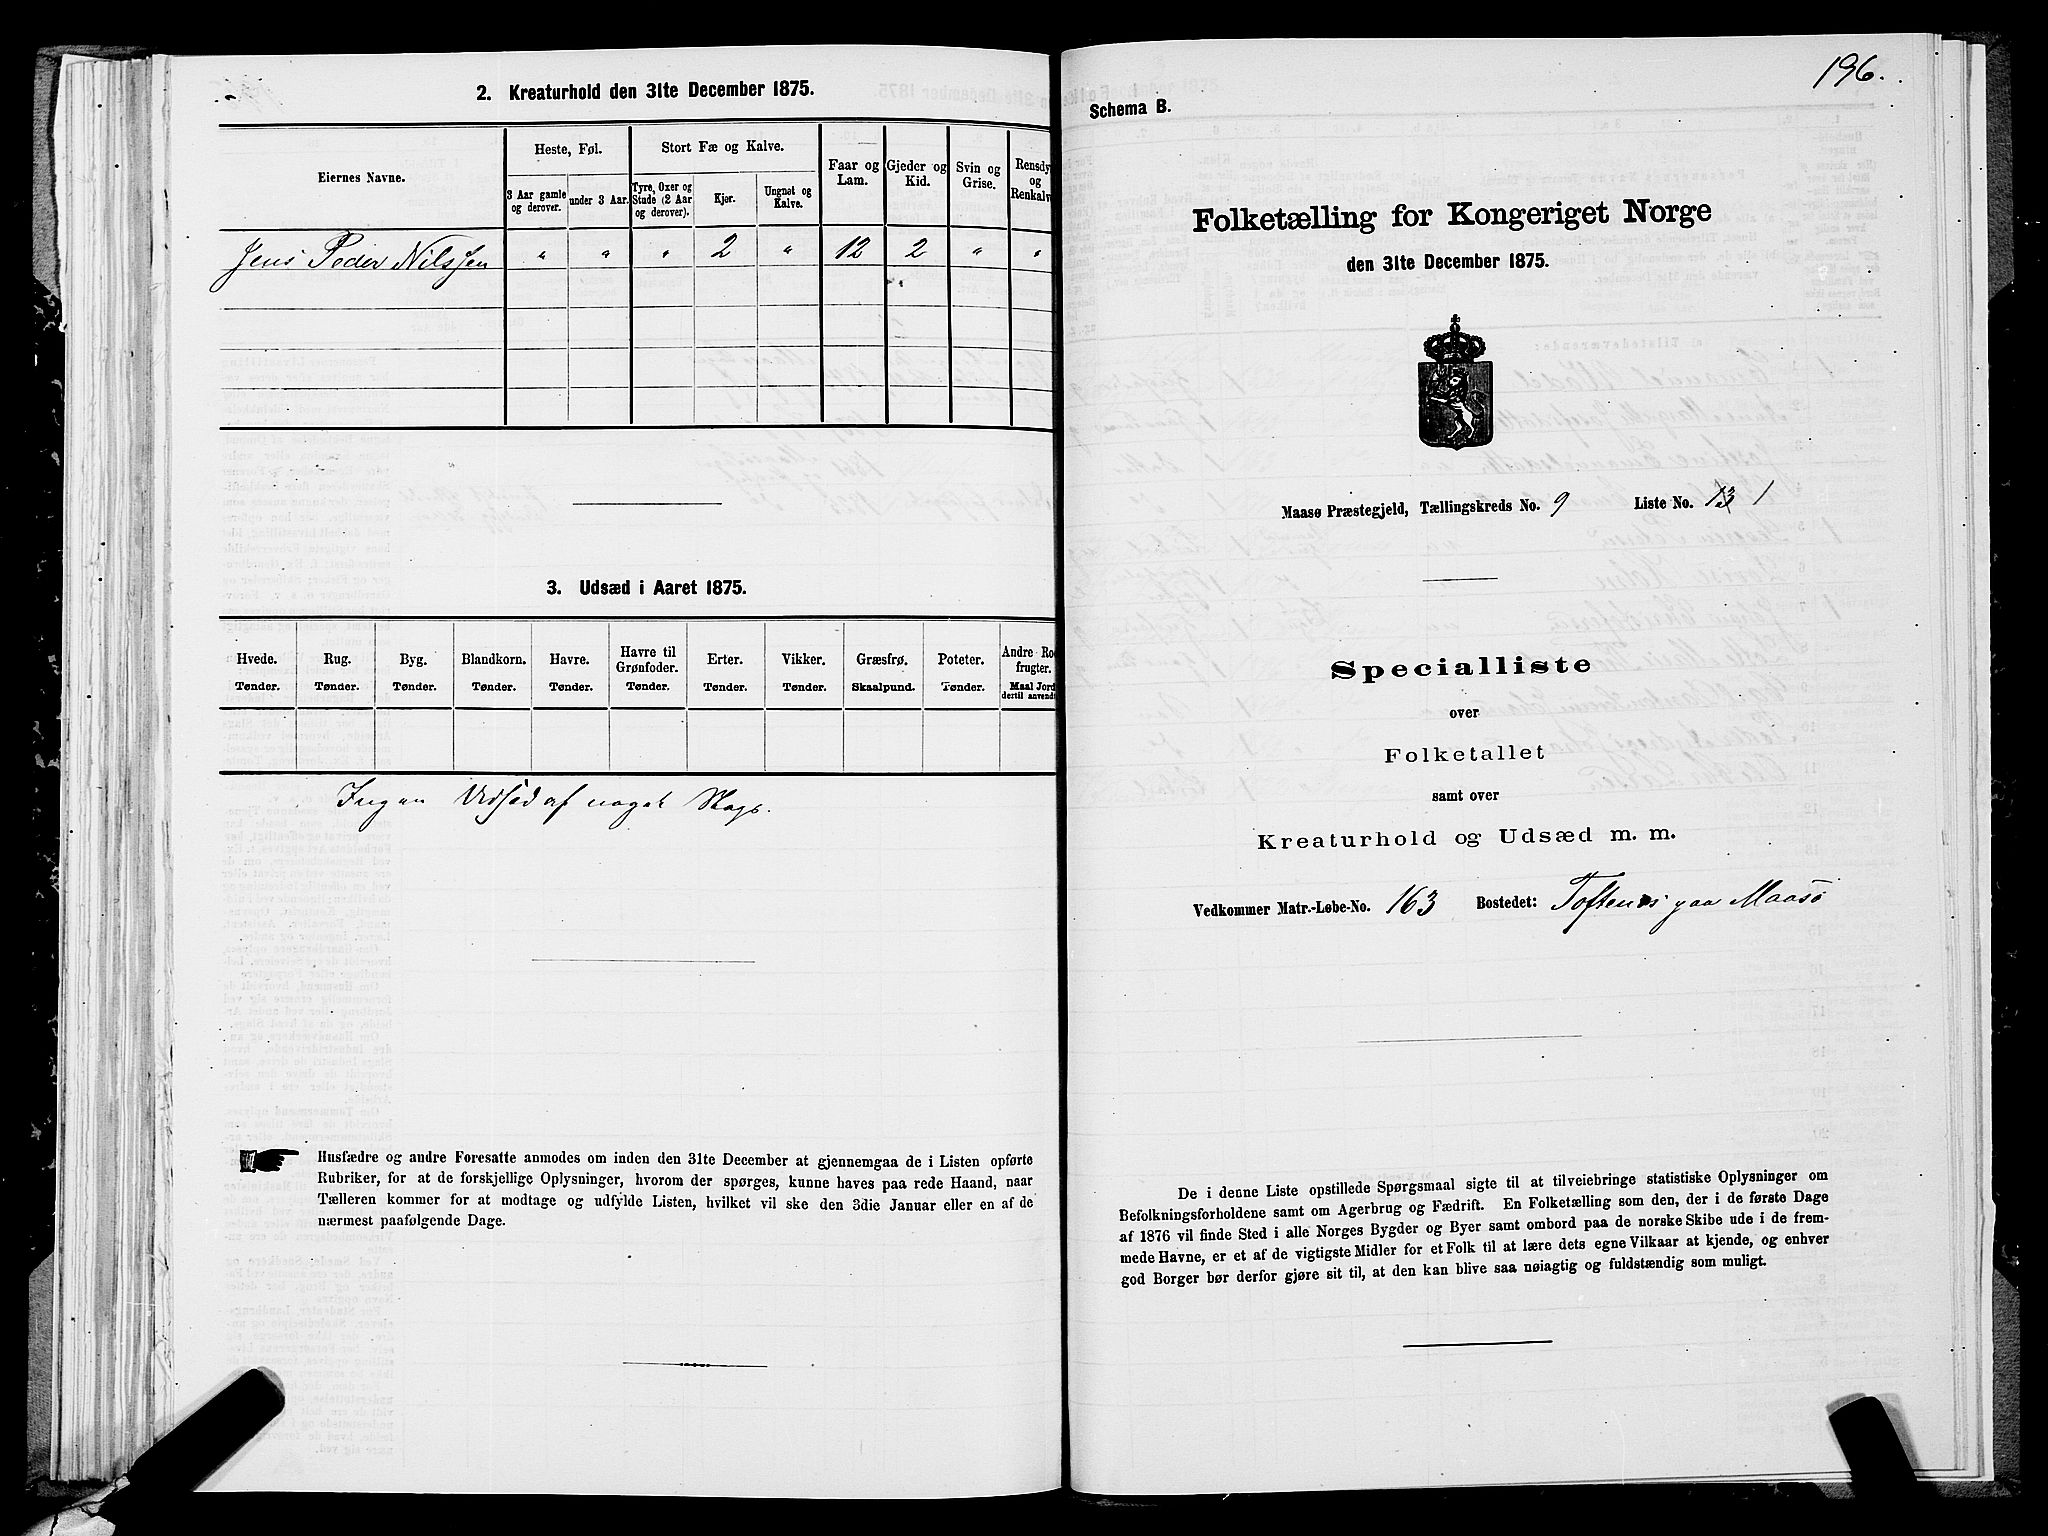 2. Kreaturhold den 31te December 1875.
Eiernes Navne.
Heste, Føl.
Stort Fæ og Kalve.
Faar og Lam.
Gjeder og Kid.
Svin og Grise.
Rensdy og Renkalv
3 Aar gamle og derover.
under 3 Aar.
Tyre, Oxer og Stude (2 Aar og derover).
Kjør.
Ungnøt og Kalve.
Jens Peder Nilssen " " " 2 " 12 2 " "
3. Udsæd i Aaret 1875.
Hvede. Rug. Byg. Blandkorn. Havre. Havre til Grønfoder. Erter. Vikker. Græsfrø. Poteter. Andre Ro frugter.
Tønder. Tønder. Tønder. Tønder. Tønder. Tønder. Tønder. Tønder. Skaalpund. Tønder. Maal Jord dertil anvend
Ingen Udsæd af noget Slags.
Husfædre og andre Foresatte anmodes om inden den 31te December at gjennemgaa de i Listen opførte
Rubriker, for at de forskjellige Oplysninger, hvorom der spørges, kunne haves paa rede Haand, naar
Tælleren kommer for at modtage og udfylde Listen, hvilket vil ske den 3die Januar eller en af de
nærmest paafølgende Dage.
196.
Schema B.
Folketælling for Kongeriget Norge
den 31te December 1875.
Maasø Præstegjeld, Tællingskreds No. 9 Liste No. 13 1
Specialliste
over
Folketallet
samt over
Kreaturhold og Udsæd m. m.
Vedkommer Matr.-Løbe-No. 163 Bostedet: Toftenes paa Maasø
De i denne Liste opstillede Spørgsmaal sigte til at tilveiebringe statistiske Oplysninger om
Befolkningsforholdene samt om Agerbrug og Fædrift. En Folketælling som den, der i de første Dage
af 1876 vil finde Sted i alle Norges Bygder og Byer samt ombord paa de norske Skibe ude i de frem-
mede Havne, er et af de vigtigste Midler for et Folk til at lære dets egne Vilkaar at kjende, og enhver
god Borger bør derfor gjøre sit til, at den kan blive saa nøiagtig og fuldstændig som muligt.